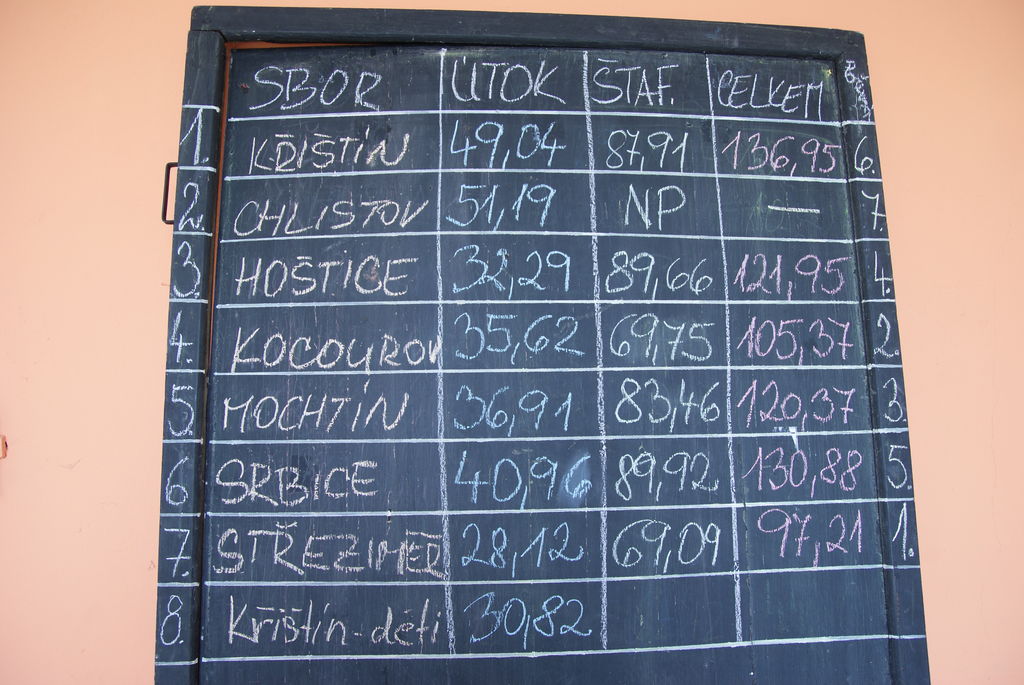 SBOR ÚTOK ŠTAF. CELKEM
1. KŘIŠTÍN 49,04 87,91 136,95 6.
2. CHLISTOV 51,19 NP — 7.
3. HOŠTICE 32,29 89,66 121,95 4.
4. KOCOUROV 35,62 69,75 105,37 2.
5. MOCHTÍN 36,91 83,46 120,37 3.
6 SRBICE 40,96 89,92 130,88 5.
7. STŘEZIMĚŘ 28,12 69,09 97,21 1.
8. Křištín-děti 30,82